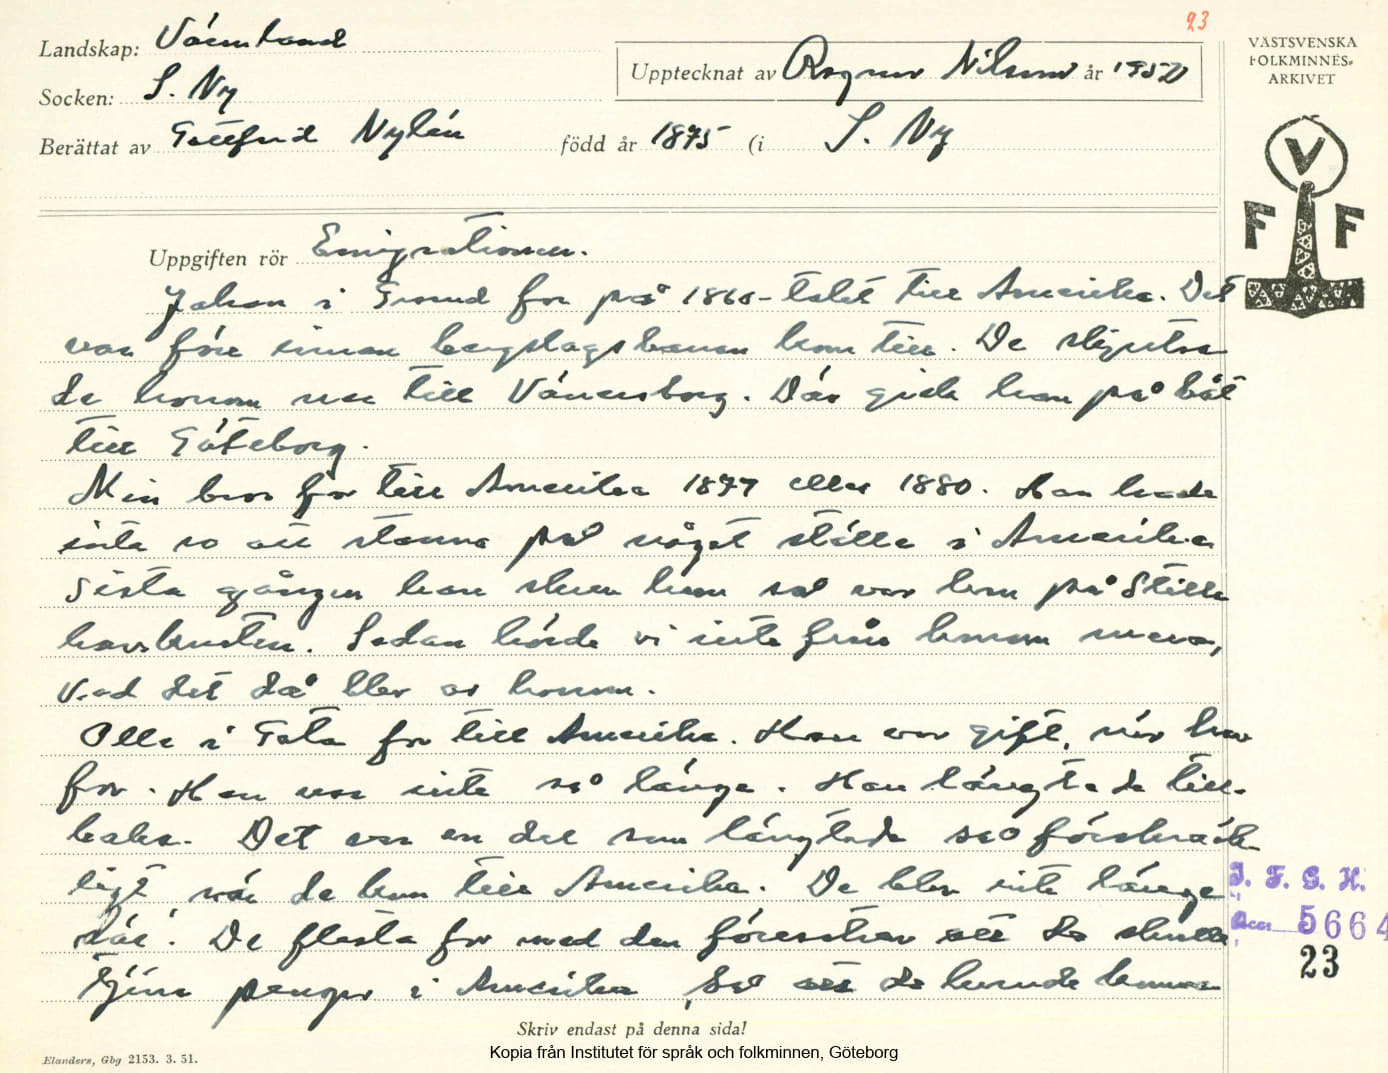 23
Landskap: Värmland
Socken: S. Ny
Berättat av Gottfrid Nylén född år 1875 (i S. Ny
Upptecknat av Ragnar Nilsson år 1952
VÄSTSVENSKA
FOLKMINNES-
ARKIVET
V
F F
Uppgiften rör Emigrationen.
Johan i Grund for på 1860-talet till Amerika. Det
var före innan bergslagsbanan kom till. De skjutsa
de honom ner till Vänersborg. Där gick han på båt
till Göteborg.
Min bror for till Amerika 1877 eller 1880. Han hade
inte ro att stanna på något ställe i Amerika
Sista gången han skrev hem så var han på Stilla
havskusten. Sedan hörde vi inte från honom mera,
vad det då blev av honom.
Olle i Gata for till Amerika. Han var gift, när han
for. Han var inte så länge. Han längtade till-
baka. Det var en del som längtade så förskräck
ligt när de kom till Amerika. De blev inte länge
där. De flesta for med den föresatsen att de skulle
tjäna pengar i Amerika, så att de kunde komma
Skriv endast på denna sida!
Elanders, Gbg 2153. 3. 51.
Kopia från Institutet för språk och folkminnen, Göteborg
I. F. G. H.
Acc. 5664
23